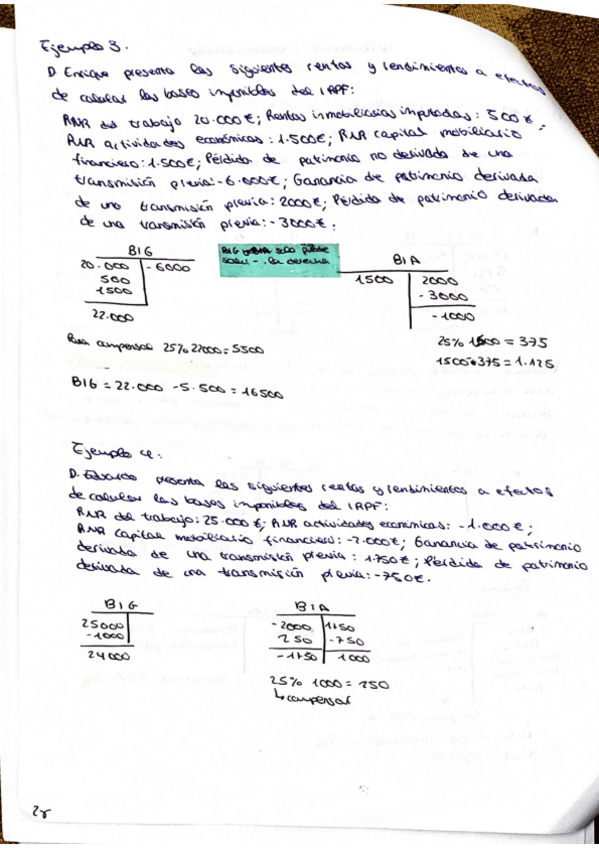 Ejemplo 3.
D. Enrique presenta las siguientes rentas y rendimientos a efectos
de calcular las bases imponibles del IRPF:
RNR del trabajo 20.000€; Rentas inmobiliarias imputadas: 500€;
RNR actividades económicas: 1.500€; RNR capital mobiliario
financiero: 1.500€; Pérdida de patrimonio no derivada de una
transmisión previa: -6.000€; Ganancia de patrimonio derivada
de una transmisión previa: 2000€; Pérdida de patrimonio derivada
de una transmisión previa: -3000€.
BIG
20.000 -6000
500
1500
22.000
BIG solo puede
salir la derecha
BIA
1500 2000
-3000
-1000
Para compensar 25% 22000 = 5500
BIG = 22.000 - 5.500 = 16500
25% 1500 = 375
1500-375 = 1.125
Ejemplo 4:
D. Eduardo presenta las siguientes rentas y rendimientos a efectos
de calcular las bases imponibles del IRPF:
RNR del trabajo: 25.000€; RNR actividades económicas: -1.000€;
RNR capital mobiliario financiero: -2.000€; Ganancia de patrimonio
derivada de una transmisión previa: 1.750€; Pérdida de patrimonio
derivada de una transmisión previa: -750€.
BIG
25000
-1000
24000
BIA
-2000 1750
250 -750
-1750 1000
25% 1000 = 250
↳ compensar